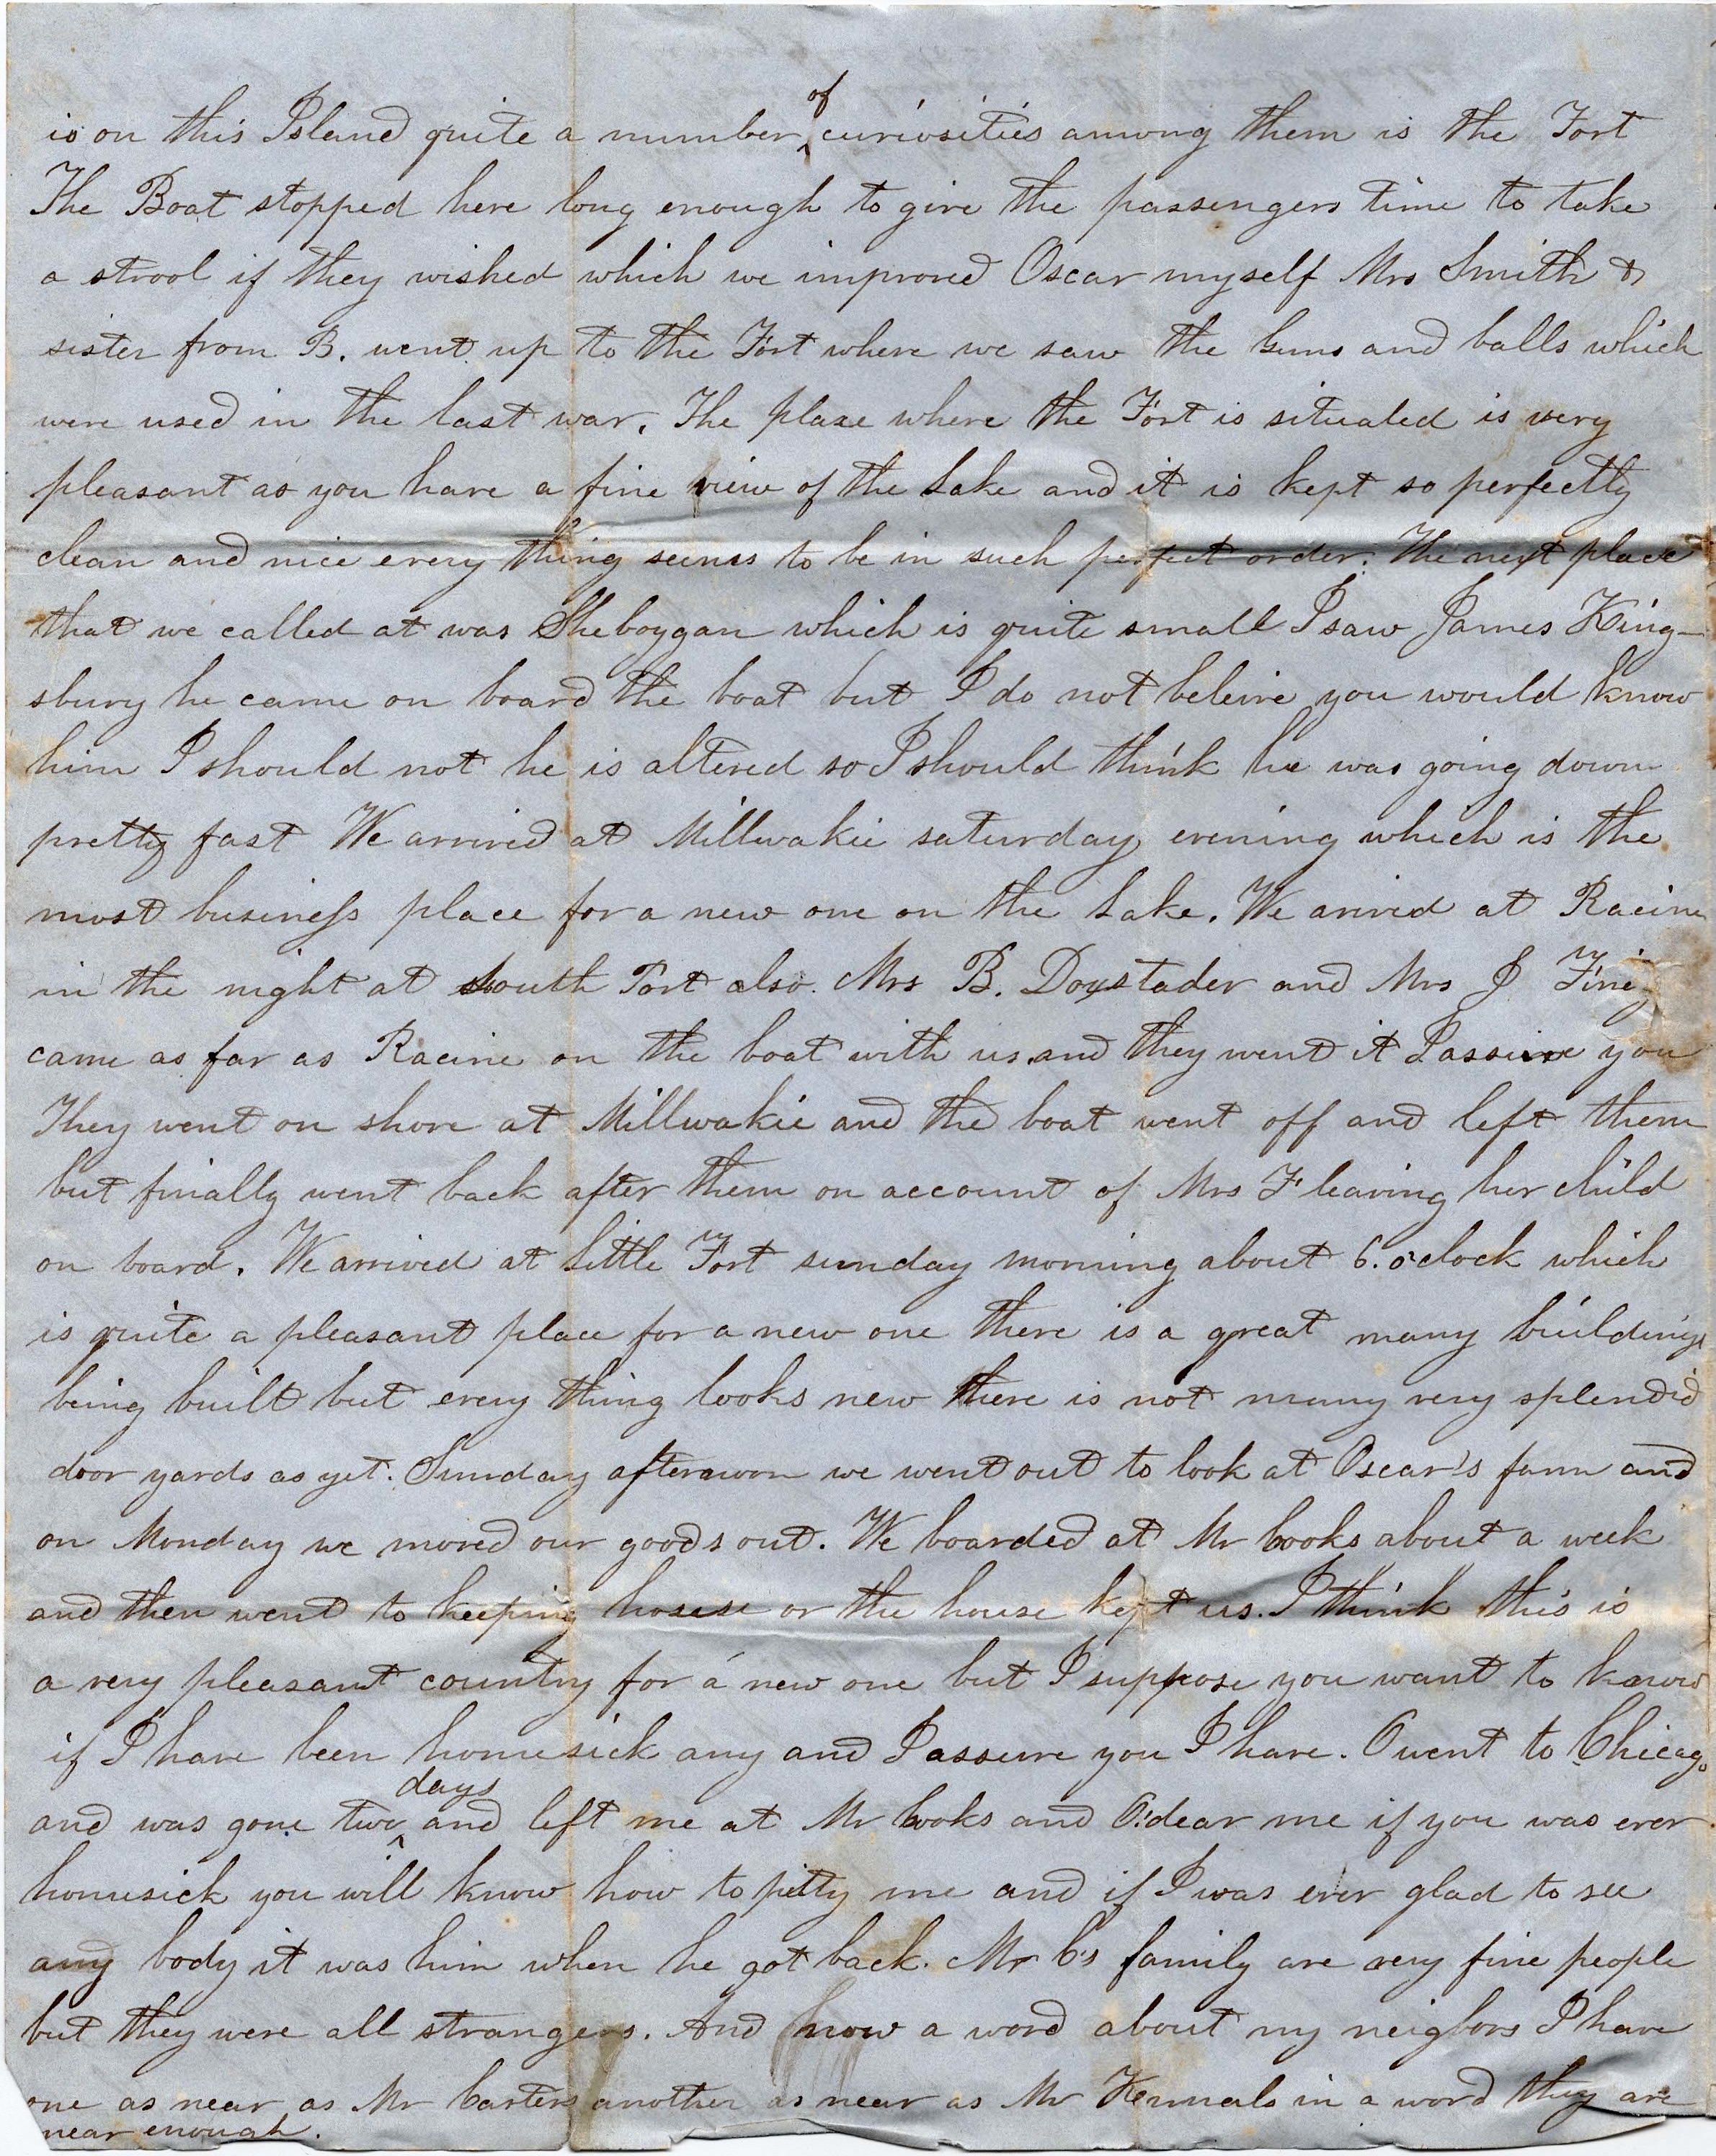 is on this Island quite a number of curiosities among them is the Fort
The Boat stopped here long enough to give the passengers time to take
a strool if they wished which we improved Oscar myself Mrs Smith &
sister from B. went up to the Fort where we saw the Guns and balls which
were used in the last war. The place where the Fort is situated is very
pleasant as you have a fine view of the Lake and it is kept so perfectly
clean and nice every thing seems to be in such perfect order. The next place
that we called at was Sheboygan which is quite small I saw James King-
sbury he came on board the boat but I do not beleive you would know
him I should not he is altered so I should think he was going down
pretty fast We arrived at Millwakie saturday evening which is the
most business place for a new one on the Lake. We arived at Racine
in the night at South Port also. Mrs B. Doxstader and Mrs J
came as far as Racine on the boat with us and they went it I assure you
They went on shore at Millwakie and the boat went off and left them
but finally went back after them on account of Mrs F leaving her child
on board. We arrived at Little Fort sunday morning about 6. o'clock which
is quite a pleasant place for a new one there is a great many buildings
being built but every thing looks new there is not many very splendid
door yards as yet. Sunday afternoon we went out to look at Oscar's farm and
on Monday we moved our goods out. We boarded at Mr Cooks about a week
and then went to keeping house or the house kept us. I think this is
a very pleasant country for a new one but I suppose you want to know
if I have been homesick any and I assure you I have. O went to Chicago
and was gone two days and left me at Mr Cooks and O! dear me if you was ever
homesick you will know how to pitty me and if I was ever glad to see
any body it was him when he got back. Mr C's family are very fine people
but they were all strangers. And now a word about my neigbors I have
one as near as Mr Carters another as near as Mr in a word they are
near enough.